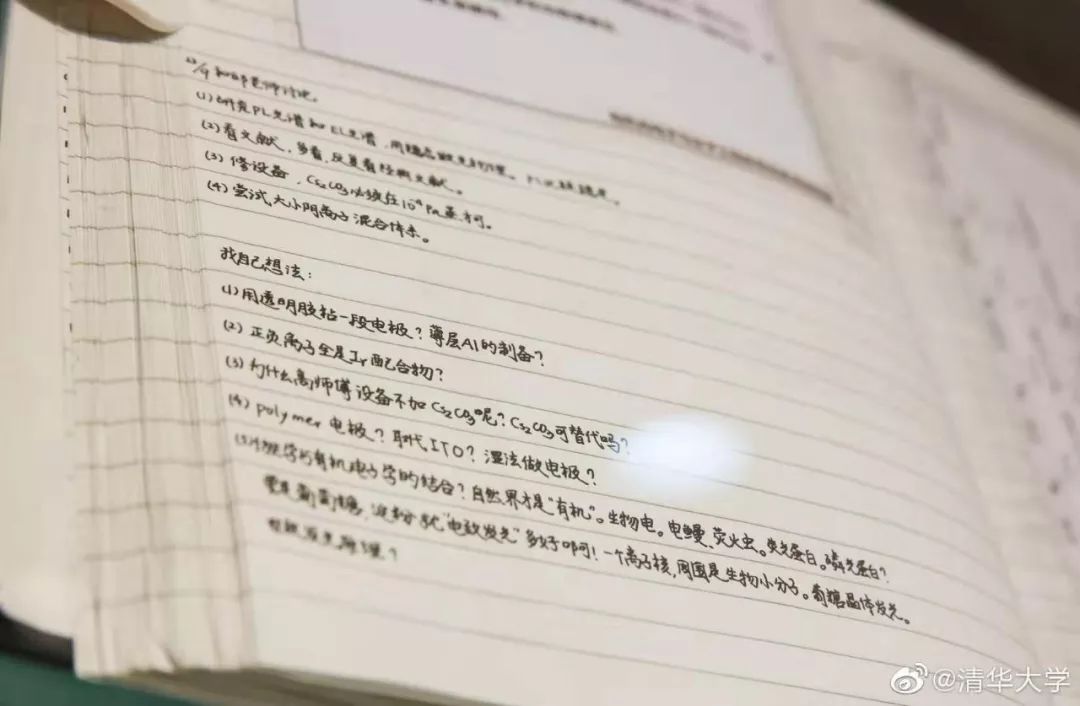 (1) 研究PL光谱和EL光谱,用
(2) 看文献,多看,反复看经典文献。
(3) 修设备,Cs₂CO₃必须在10⁻⁴Pa蒸才可。
(4) 尝试大小阴离子混合体系。
我自己想法:
(1) 用透明胶粘一段电极?薄层Al的制备?
(2) 正负离子全是Ir配合物?
(3) 为什么高师傅设备不加Cs₂CO₃呢?Cs₂CO₃可替代吗?
(4) polymer电极?取代ITO?湿法做电极?
学与有机电子学的结合?自然界才是“有机”。生物电。电鳗、萤火虫。荧光蛋白。磷光蛋白?
葡萄糖、淀粉就“电致发光”多好啊!一个离子核,周围是生物小分子。葡糖晶体发光。
@清华大学